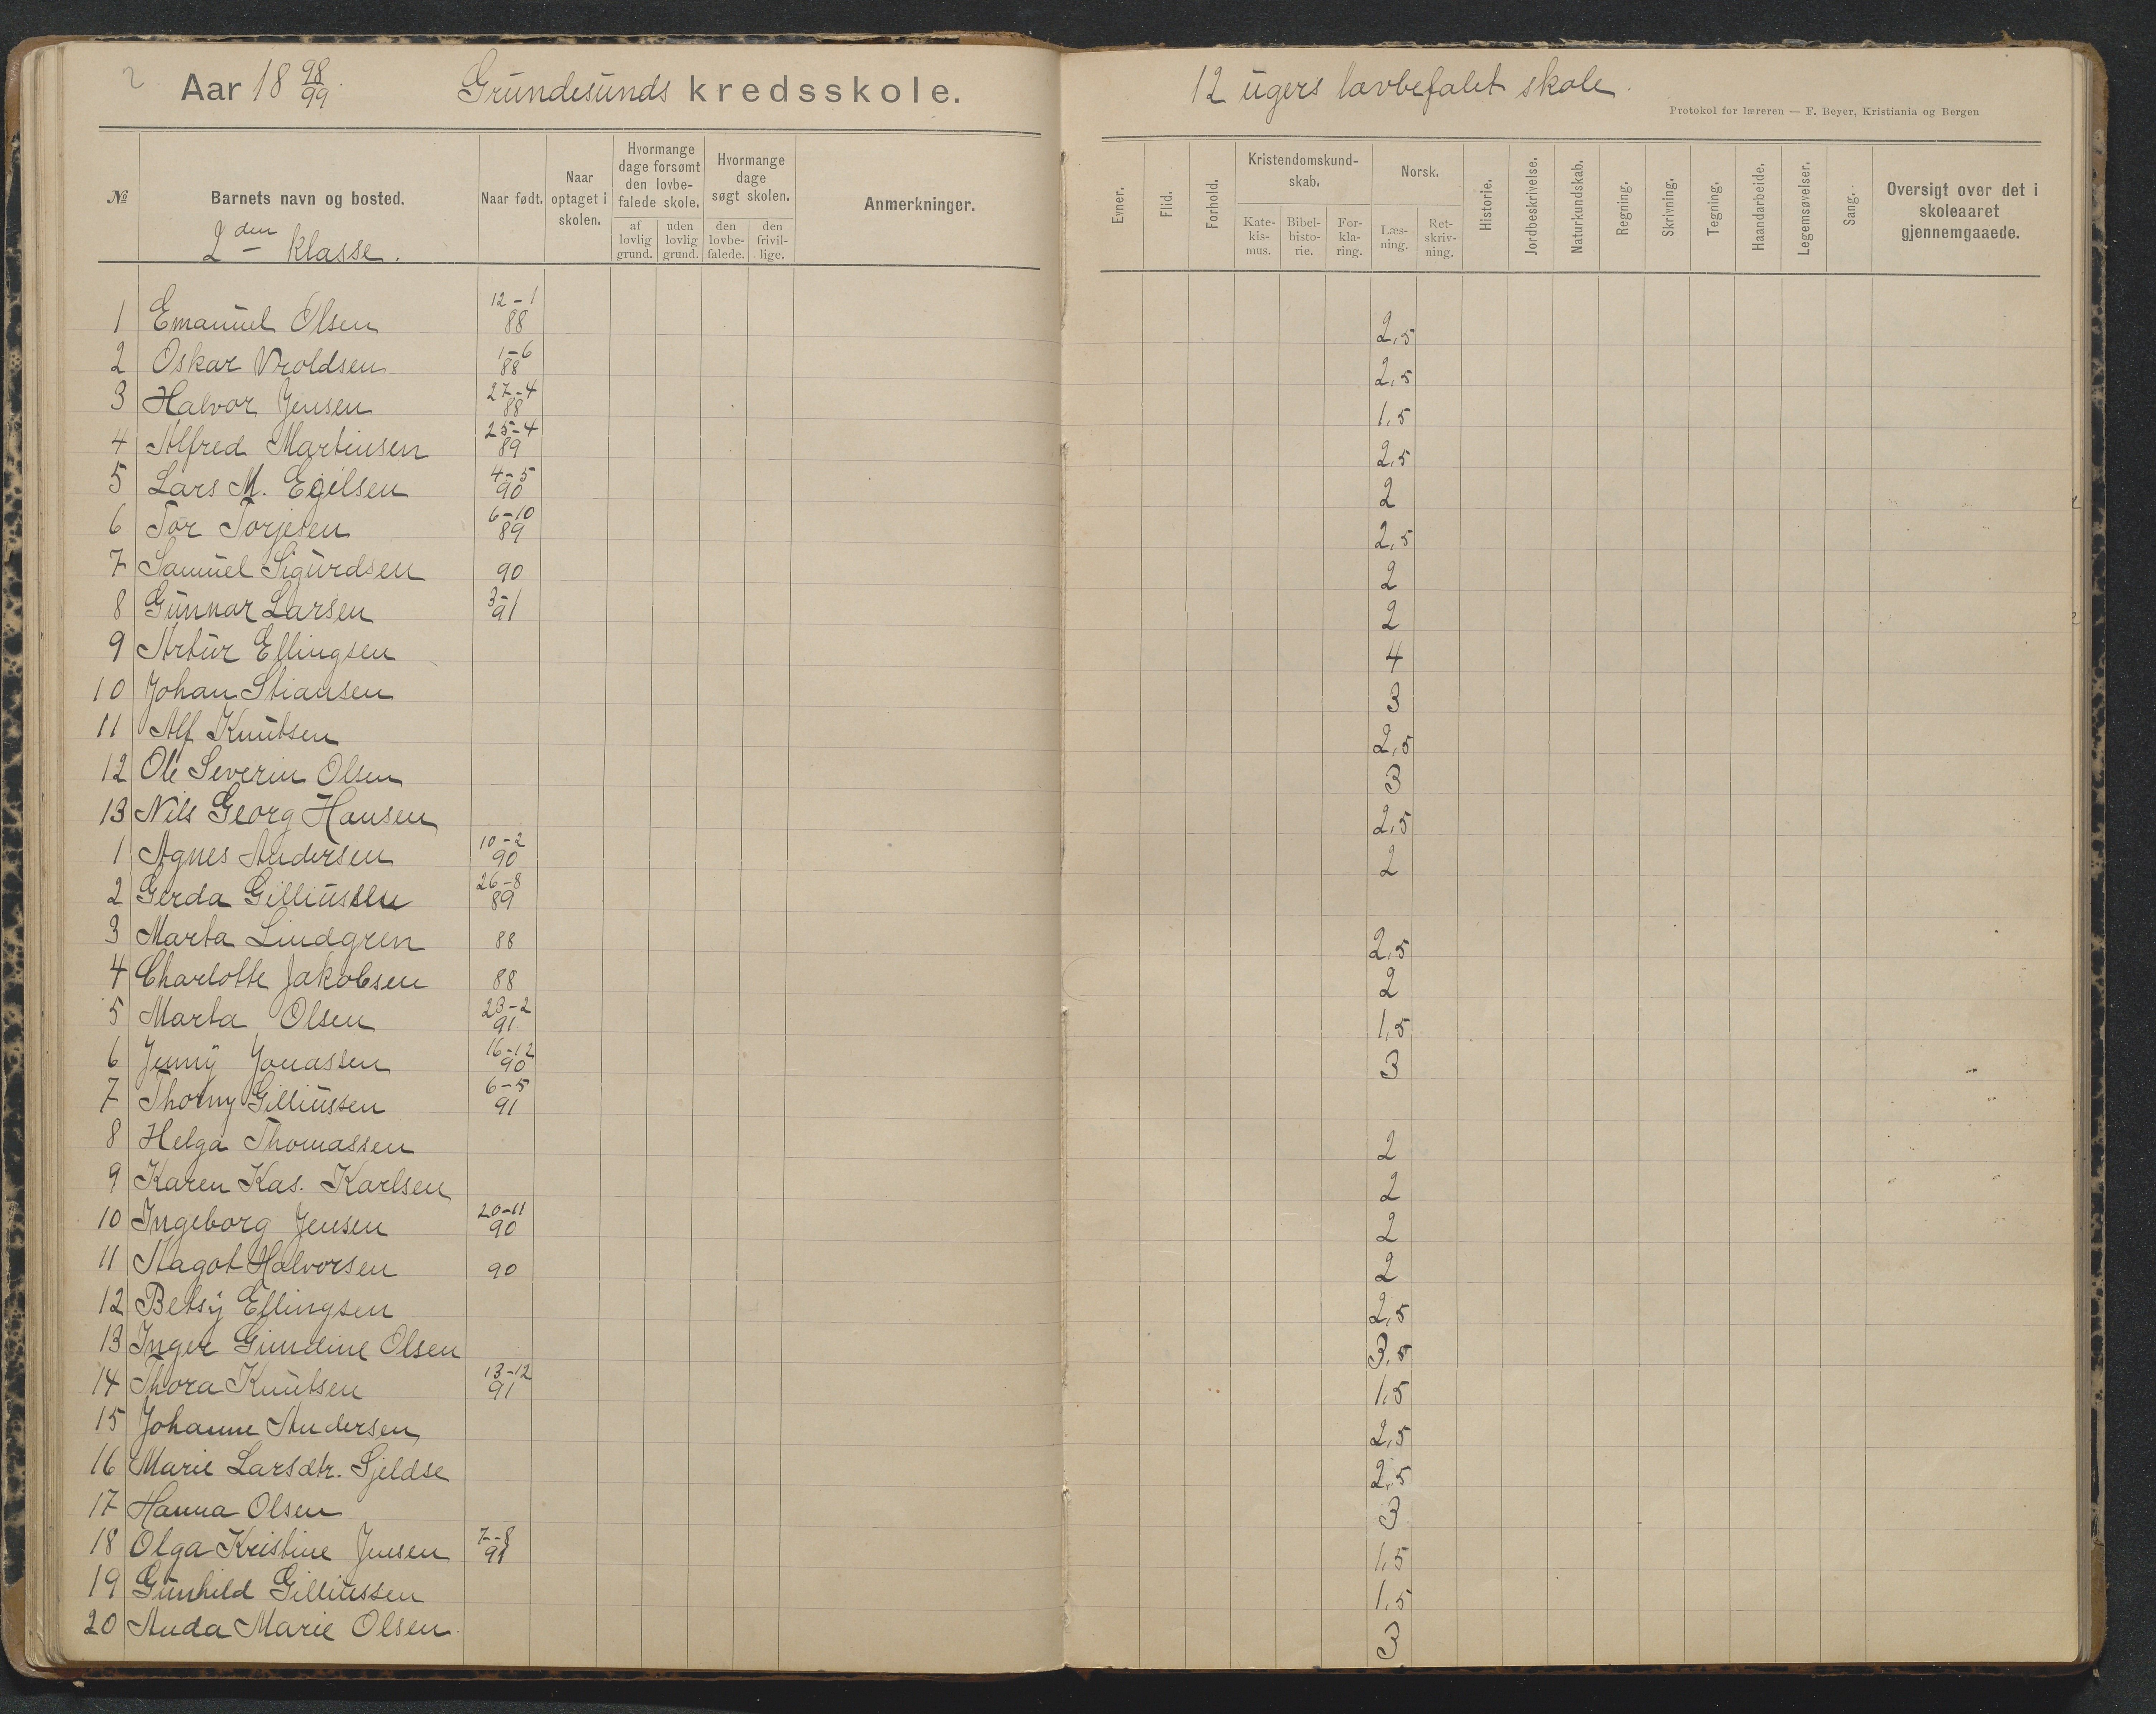 2 Aar 18 98/99. Grundesunds kredsskole.
№ Barnets navn og bosted. Naar født. Naar optaget i skolen. Hvormange dage forsømt den lovbefalede skole. af lovlig grund. uden lovlig grund. Hvormange dage søgt skolen. den lovbefalede. den frivillige. Anmerkninger.
2den klasse.
1 Emanuel Olsen 12-1 88
2 Oskar Vroldsen 1-6 88
3 Halvor Jensen 27-4 88
4 Alfred Martinsen 25-4 89
5 Lars M. Egilsen 4-5 90
6 Tor Torjesen 6-10 89
7 Samuel Sigurdsen 90
8 Gunnar Larsen 3-1 91
9 Artur Ellingsen
10 Johan Stiansen
11 Alf Knutsen
12 Ole Severin Olsen
13 Nils Georg Hansen
1 Agnes Andersen 10-2 90
2 Gerda Gilliussen 26-8 89
3 Marta Lindgren 88
4 Charlotte Jakobsen 88
5 Marta Olsen 23-2 91
6 Jenny Jonassen 16-12 90
7 Thorny Gilliussen 6-5 91
8 Helga Thomassen
9 Karen Kas. Karlsen
10 Ingeborg Jensen 20-11 90
11 Aagot Halvorsen 90
12 Betsy Ellingsen
13 Inger Gundine Olsen
14 Thora Knutsen 13-12 91
15 Johanne Andersen
16 Marie Larsdtr. Sjeldse
17 Hanna Olsen
18 Olga Kristine Jensen 7-8 91
19 Gunhild Gilliussen
20 Anda Marie Olsen
12 ugers lovbefalet skole.
Protokol for læreren — F. Beyer, Kristiania og Bergen
Evner. Flid. Forhold. Kristendomskundskab. Katekismus. Bibelhistorie. Forklaring. Norsk. Læsning. Retskrivning. Historie. Jordbeskrivelse. Naturkundskab. Regning. Skrivning. Tegning. Haandarbeide. Legemsøvelser. Sang. Oversigt over det i skoleaaret gjennemgaaede.
2,5
2,5
1,5
2,5
2
2,5
2
2
4
3
2,5
3
2,5
2
2,5
2
1,5
3
2
2
2
2
2,5
3,5
1,5
2,5
2,5
3
1,5
1,5
3